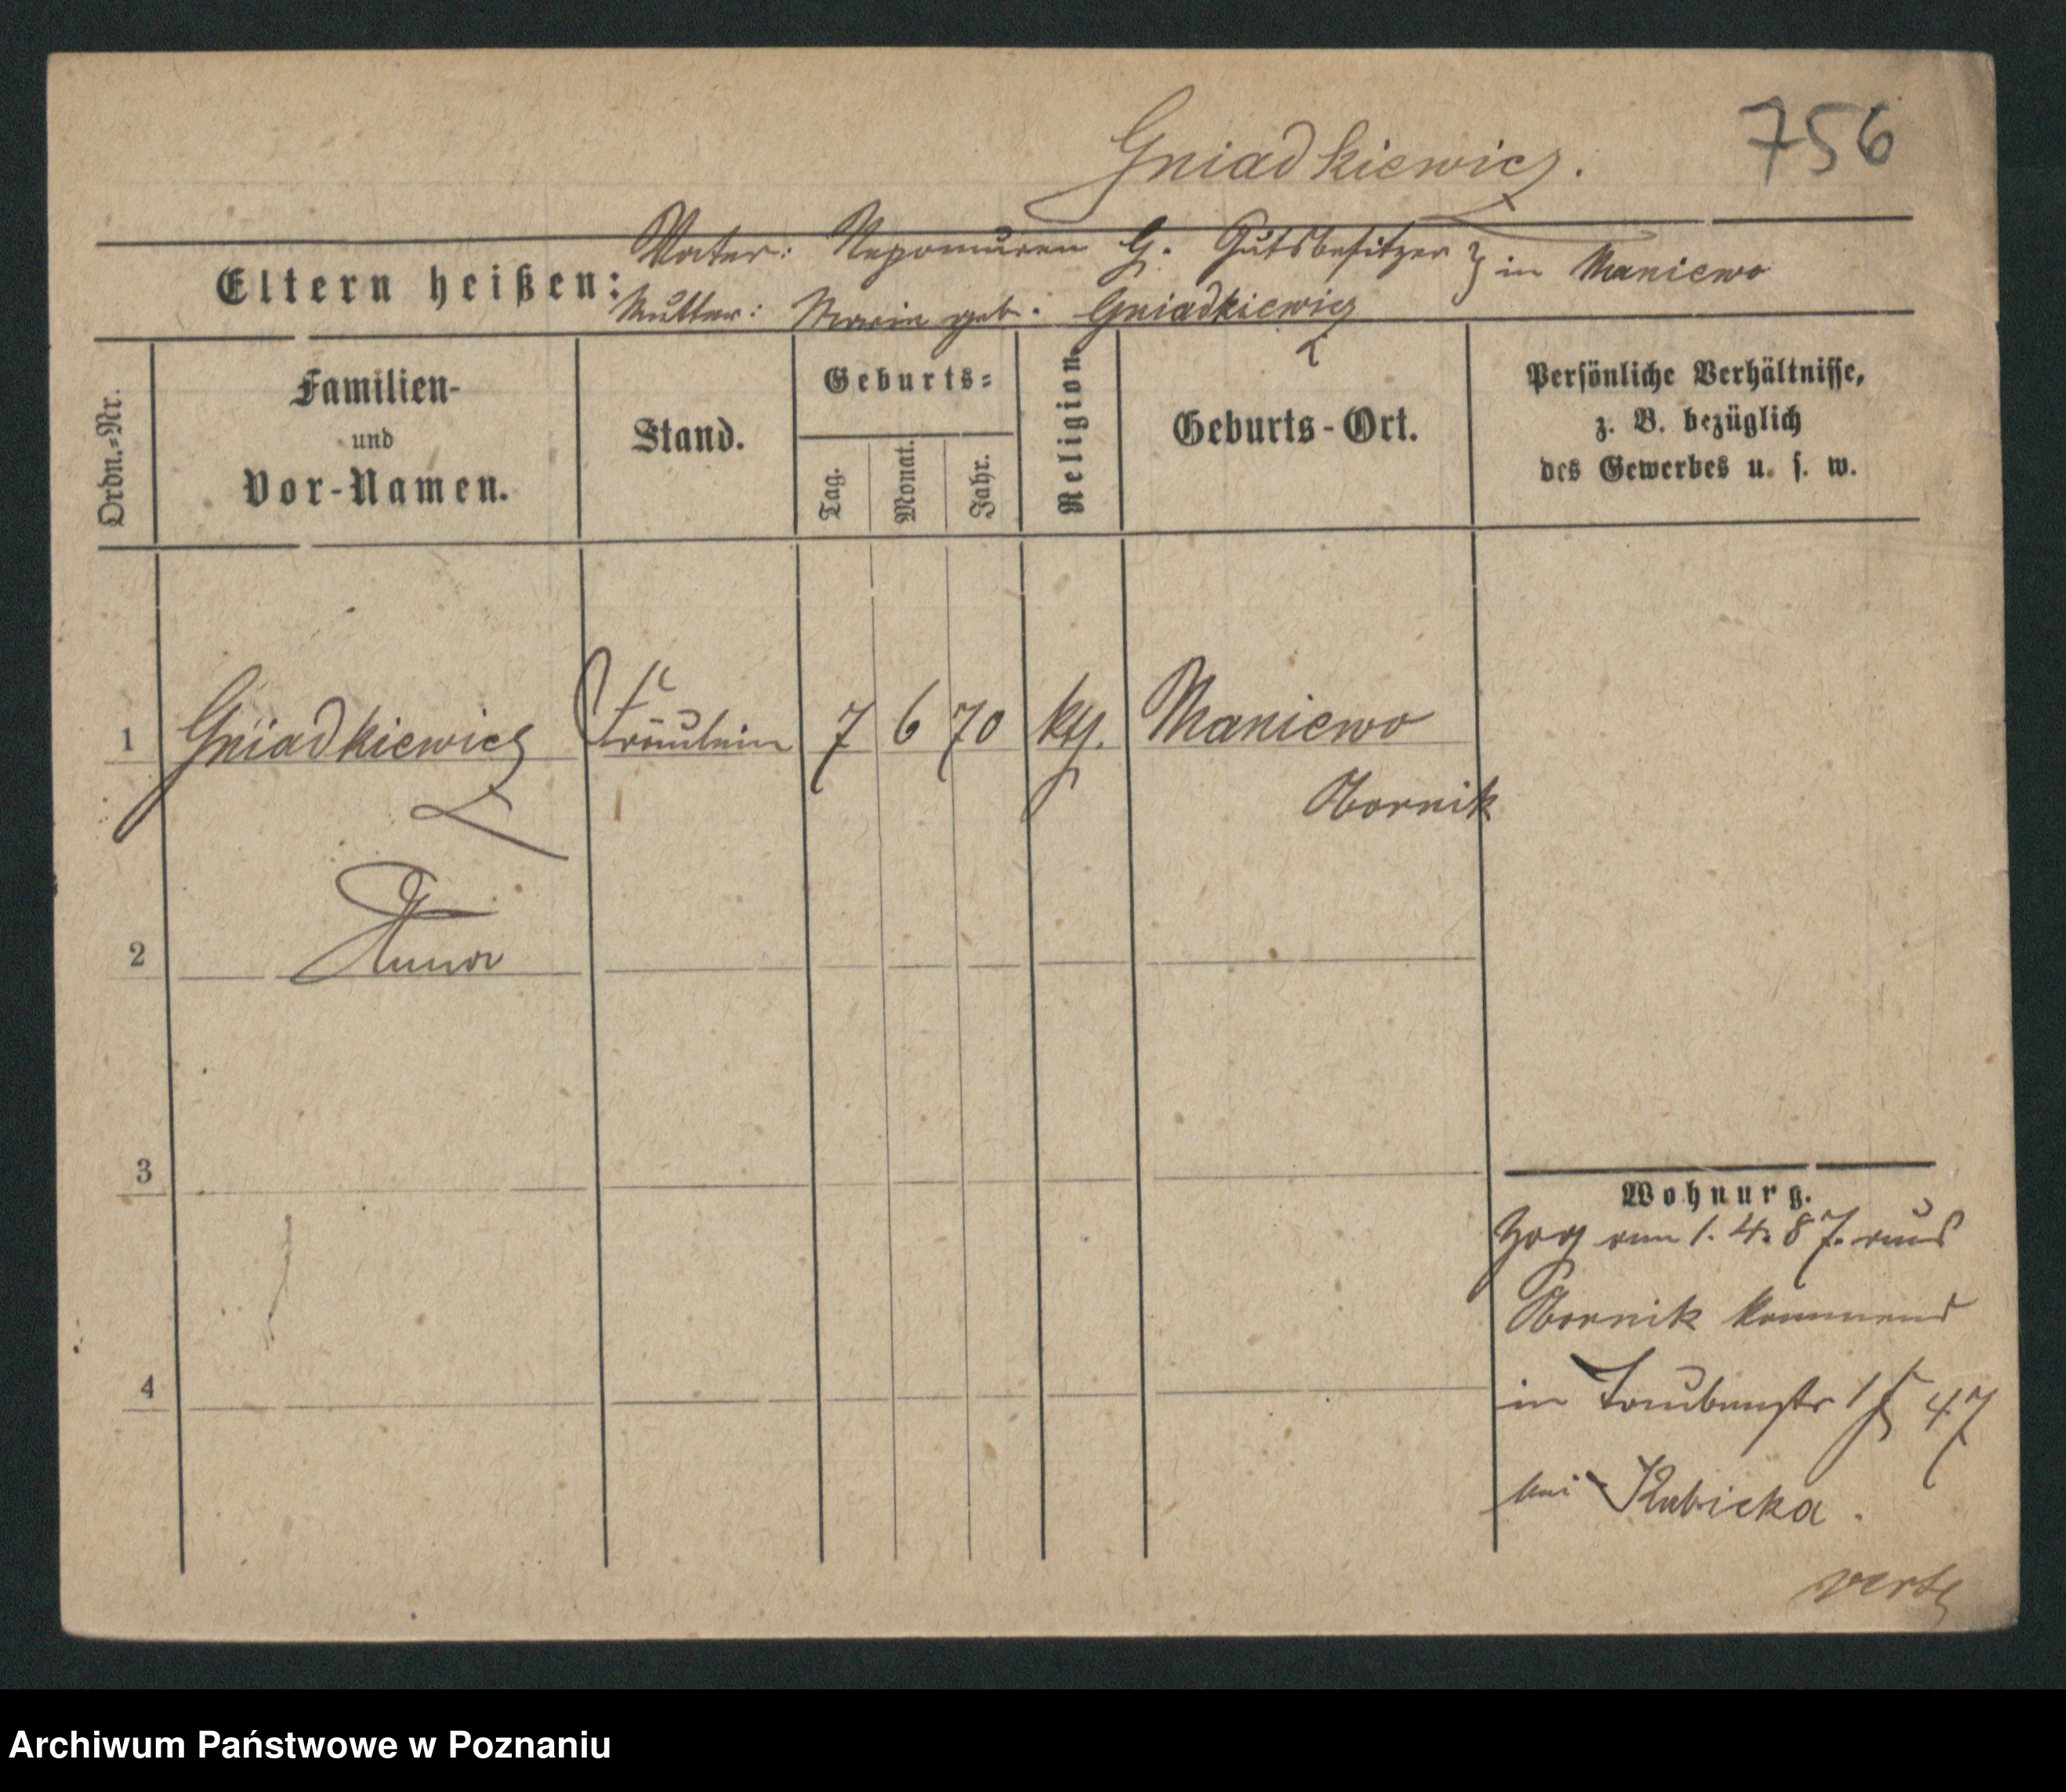 756
Gniadkiewicz.
Eltern heißen:
Vater: Nepomucen G. Gutsbesitzer } in Maniewo
Mutter: Maria geb. Gniadkiewicz
Ordn.=Nr.
Familien-
und
Vor-Namen.
Stand.
Geburts=
Tag.
Monat.
Jahr.
Religion.
Geburts-Ort.
Persönliche Verhältnisse,
z. B. bezüglich
des Gewerbes u. s. w.
1 Gniadkiewicz Fräulein 7 6 70 kth. Maniewo
Obornik
2 Anna
3
4
Wohnung.
Zog am 1. 4. 87. aus
Obornik kommend
in Taubenstr 47
bei Kubicka.
verte
Archiwum Państwowe w Poznaniu